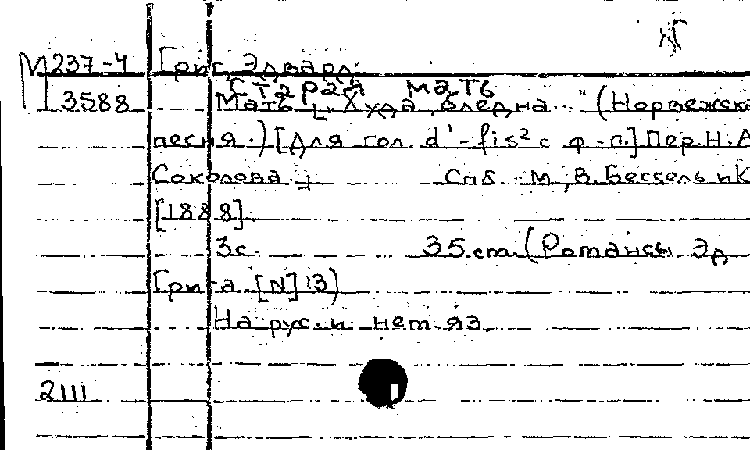 М237-4 Григ, Эдвард.
Старая мать
3588 Мать ["Худа, бледна..." (Норвежска
песня.) [Для гол. d'-fis² с ф.-п.] Пер. Н.А
Соколова. Спб.-М., В. Бессель и К
[1888].
3с. 35 см. (Романсы Эд
Грига. [N] 3)
На рус. и нем. яз.
2111